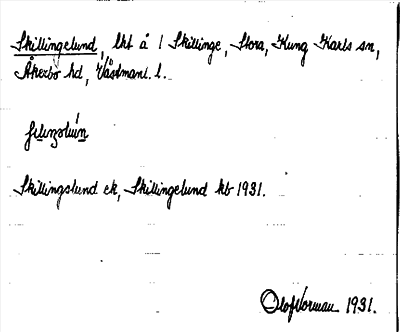 Skillingelund, lht å 1 Skillinge, Stora, Kung Karls sn,
Åkerbo hd, Västmanl. l.
Skillingslund ek, Skillingelund kb 1931.
Olof Norman 1931.